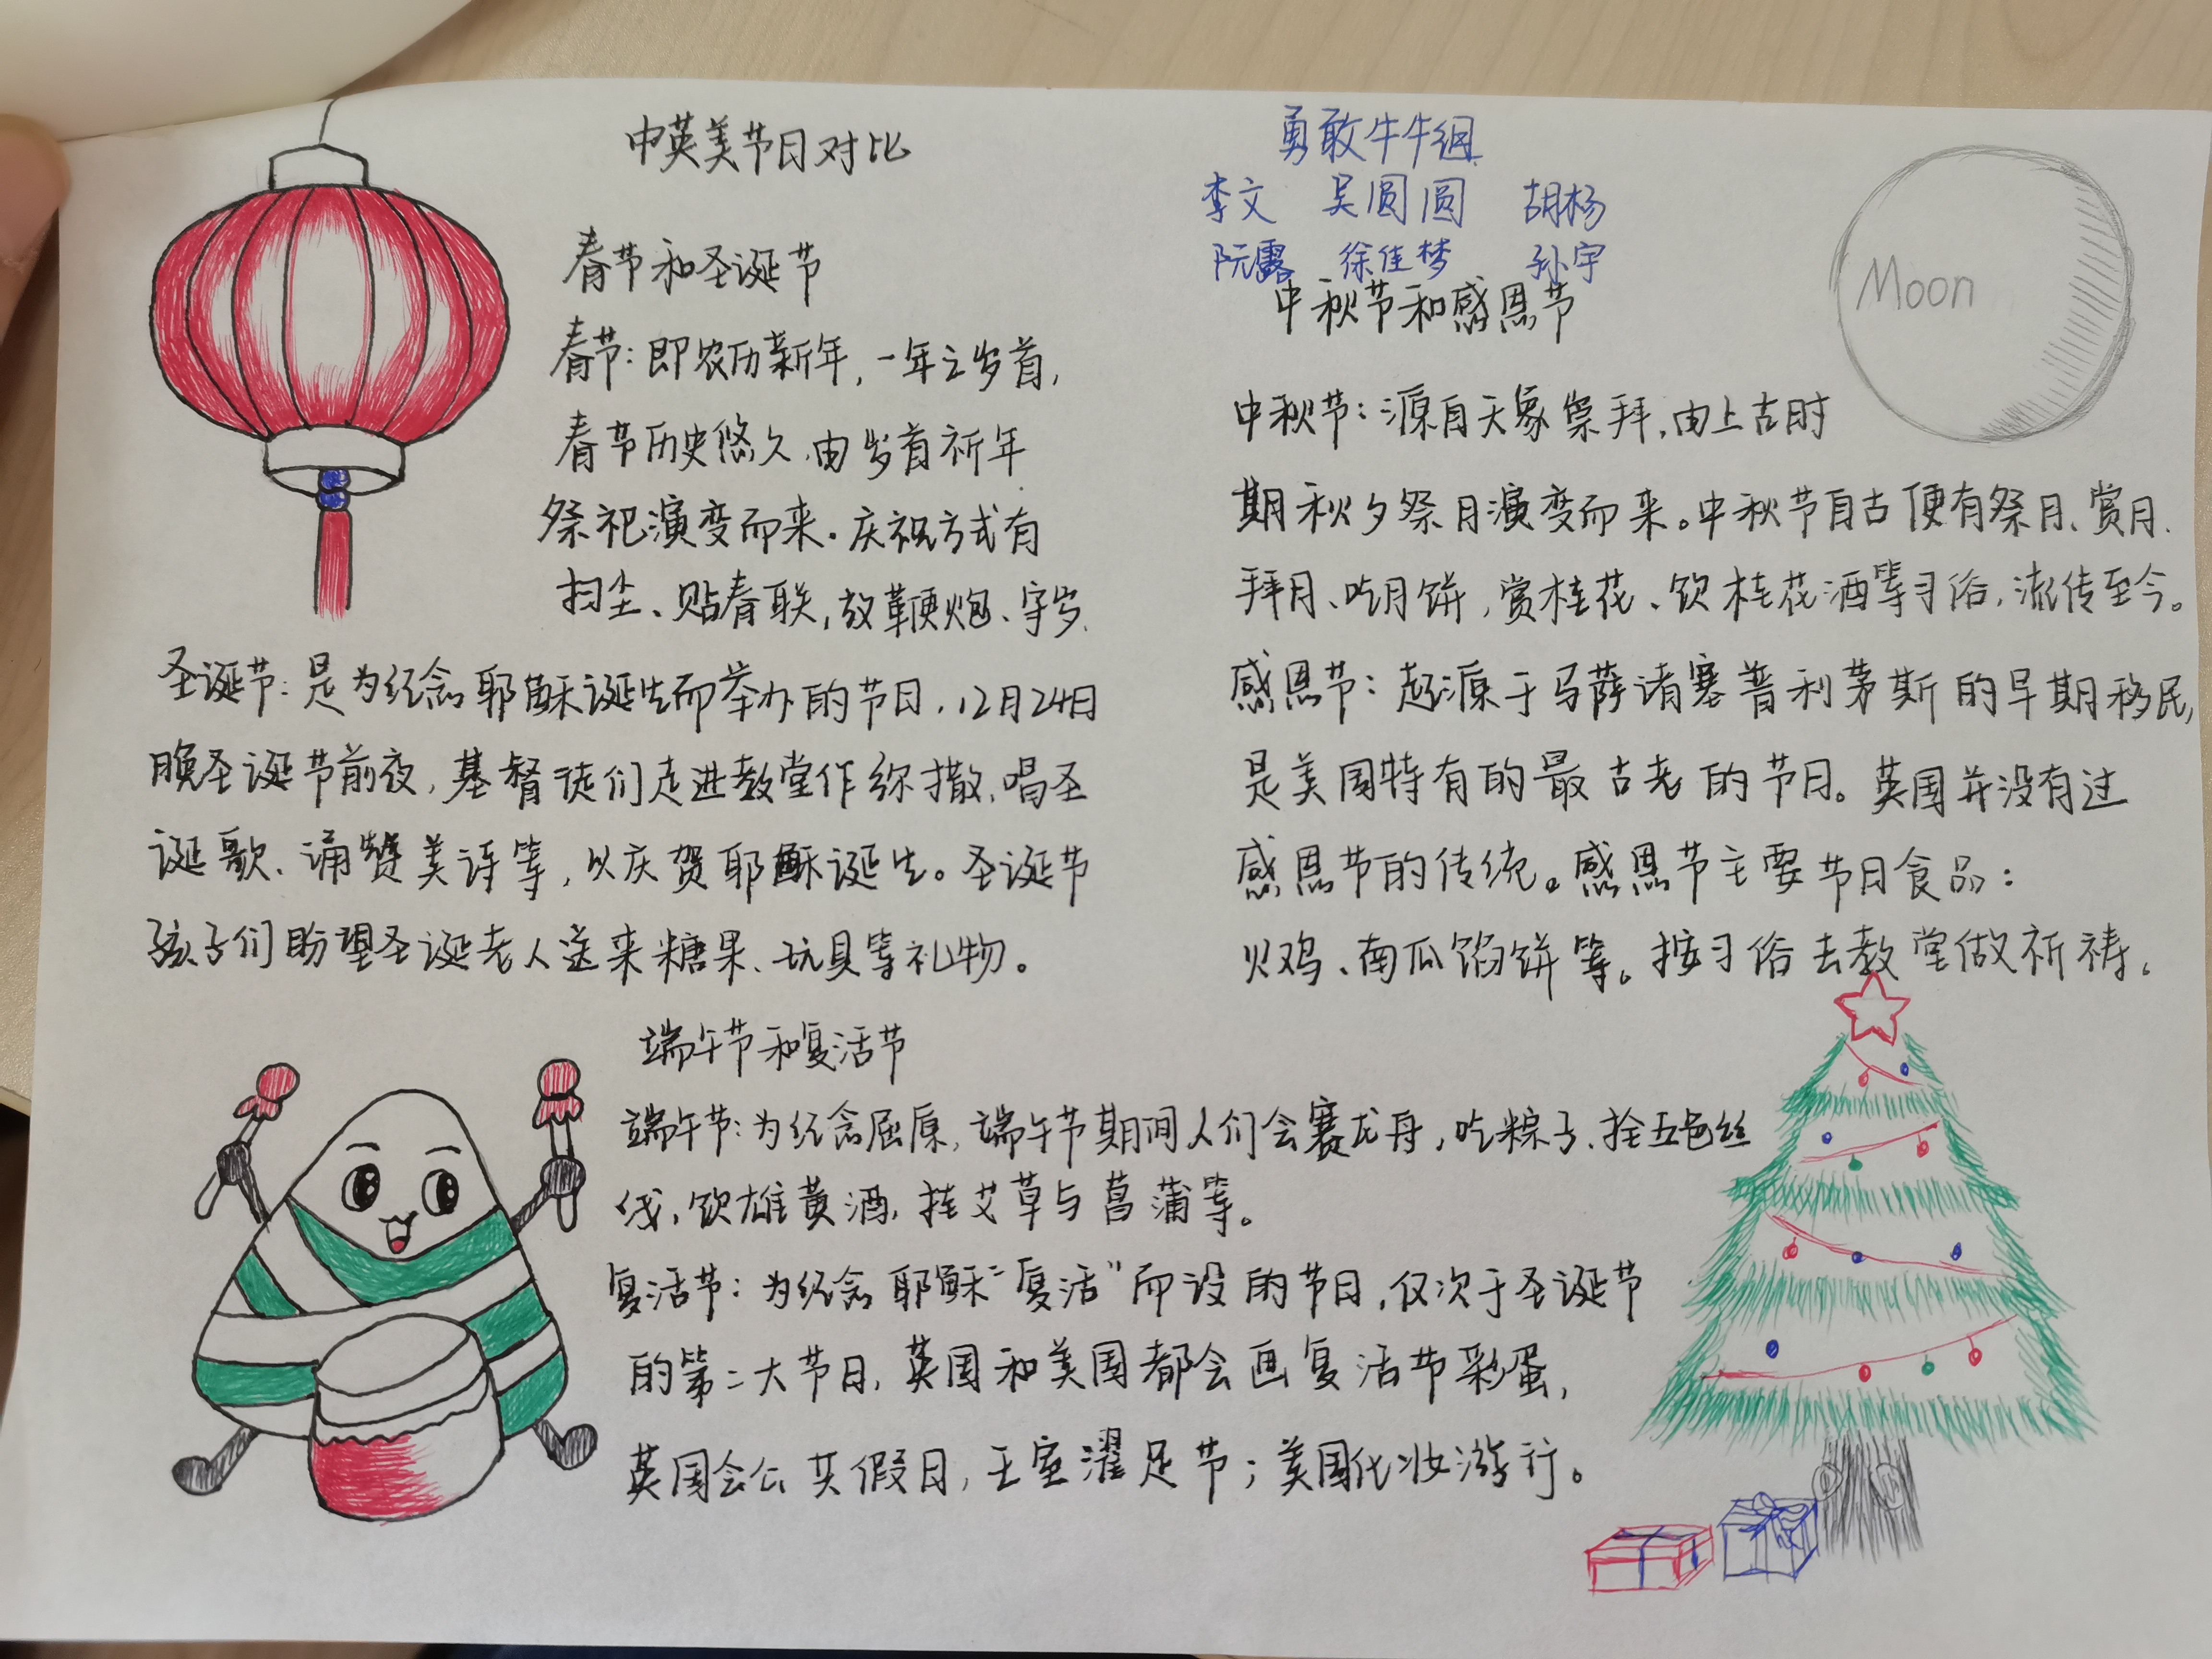 中英美节日对比
春节和圣诞节
春节：即农历新年，一年之岁首，
春节历史悠久，由岁首祈年
祭祀演变而来。庆祝方式有
扫尘、贴春联，放鞭炮、守岁.
圣诞节：是为纪念耶稣诞生而举办的节日，12月24日
晚圣诞节前夜，基督徒们走进教堂作弥撒、唱圣
诞歌、诵赞美诗等，以庆贺耶稣诞生。圣诞节
孩子们盼望圣诞老人送来糖果、玩具等礼物。
勇敢牛牛组
李文 吴圆圆 胡杨
阮露 徐佳梦 孙宇
中秋节和感恩节
Moon
中秋节：源自天象崇拜，由上古时
期秋夕祭月演变而来。中秋节自古便有祭月、赏月、
拜月、吃月饼，赏桂花、饮桂花酒等习俗，流传至今。
感恩节：起源于马萨诸塞普利茅斯的早期移民，
是美国特有的最古老的节日。英国并没有过
感恩节的传统。感恩节主要节日食品：
火鸡、南瓜馅饼等。按习俗去教堂做祈祷。
端午节和复活节
端午节：为纪念屈原，端午节期间人们会赛龙舟，吃粽子、拴五色丝
线，饮雄黄酒，挂艾草与菖蒲等。
复活节：为纪念耶稣“复活”而设的节日，仅次于圣诞节
的第二大节日，英国和美国都会画复活节彩蛋，
英国会公共假日，王室濯足节；美国化妆游行。